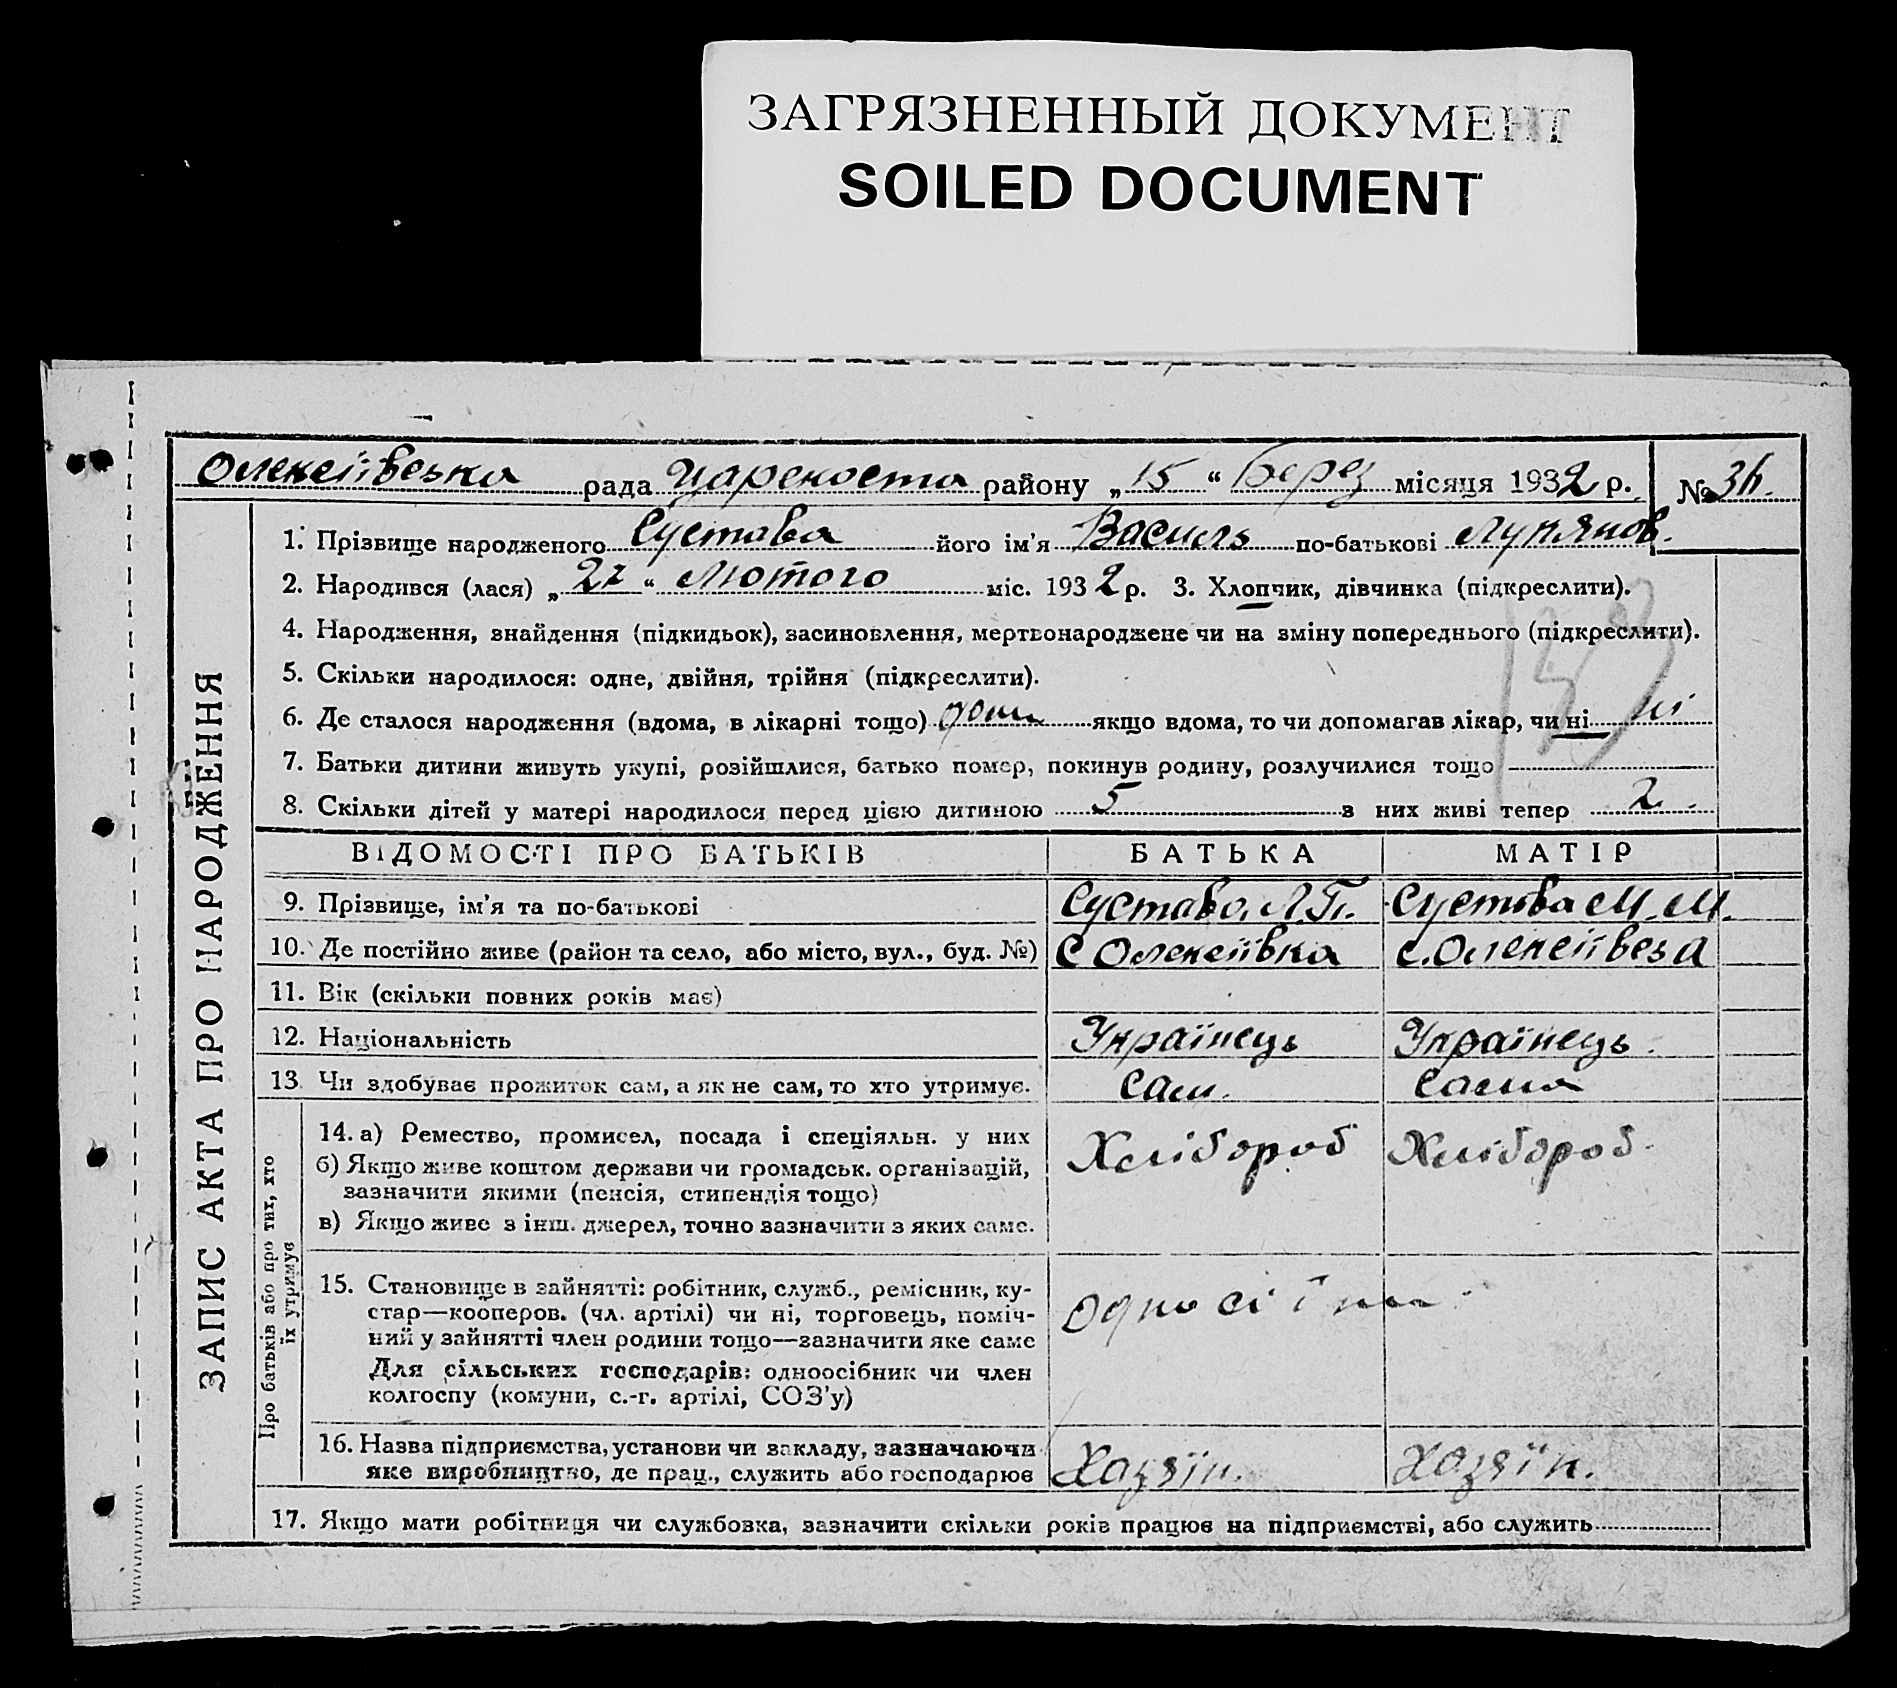 ЗАГРЯЗНЕННЫЙ ДОКУМЕНТ
SOILED DOCUMENT
Олексіївська рада район у „15“ Берез місяця 1932 р. № 36.
ЗАПИС АКТА ПРО НАРОДЖЕННЯ
1. Прізвище народженого Сустава його ім'я Василь по-батькові
2. Народився (лася) „27“ Лютого міс. 1932 р. 3. Хлопчик, дівчинка (підкреслити).
4. Народження, знайдення (підкидьок), засиновлення, мертвонароджене чи на зміну попереднього (підкреслити).
5. Скільки народилося: одне, двійня, трійня (підкреслити).
6. Де сталося народження (вдома, в лікарні тощо) доми якщо вдома, то чи допомагав лікар, чи ні ні
7. Батьки дитини живуть укупі, розійшлися, батько помер, покинув родину, розлучилися тощо
8. Скільки дітей у матері народилося перед цією дитиною 5 з них живі тепер 2.
ВІДОМОСТІ ПРО БАТЬКІВ БАТЬКА МАТІР
9. Прізвище, ім'я та по-батькові Сустава Л.П. Сустава М.М.
10. Де постійно живе (район та село, або місто, вул., буд. №) С Олексіївка с. Олексіївеза
11. Вік (скільки повних років має)
12. Національність Українець Українець.
13. Чи здобуває прожиток сам, а як не сам, то хто утримує. Сам. Сама
Про батьків або про тих, хто
їх утримує
14. а) Ремество, промисел, посада і спеціяльн. у них Хлібороб Хлібороб.
б) Якщо живе коштом держави чи громадськ. організацій,
зазначити якими (пенсія, стипендія тощо)
в) Якщо живе з інш. джерел, точно зазначити з яких саме.
15. Становище в зайнятті: робітник, служб., ремісник, ку-
стар—кооперов. (чл. артілі) чи ні, торговець, поміч-
ний у зайнятті член родини тощо—зазначити яке саме
Для сільських господарів: одноосібник чи член
колгоспу (комуни, с.-г. артілі, СОЗ'у)
16. Назва підприємства, установи чи закладу, зазначаючи
яке виробництво, де прац., служить або господарює Хазяїн. Хазяїн.
17. Якщо мати робітниця чи службовка, зазначити скільки років працює на підприємстві, або служить